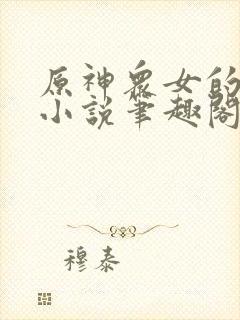 原神眾女的
小説筆趣閣
穆泰